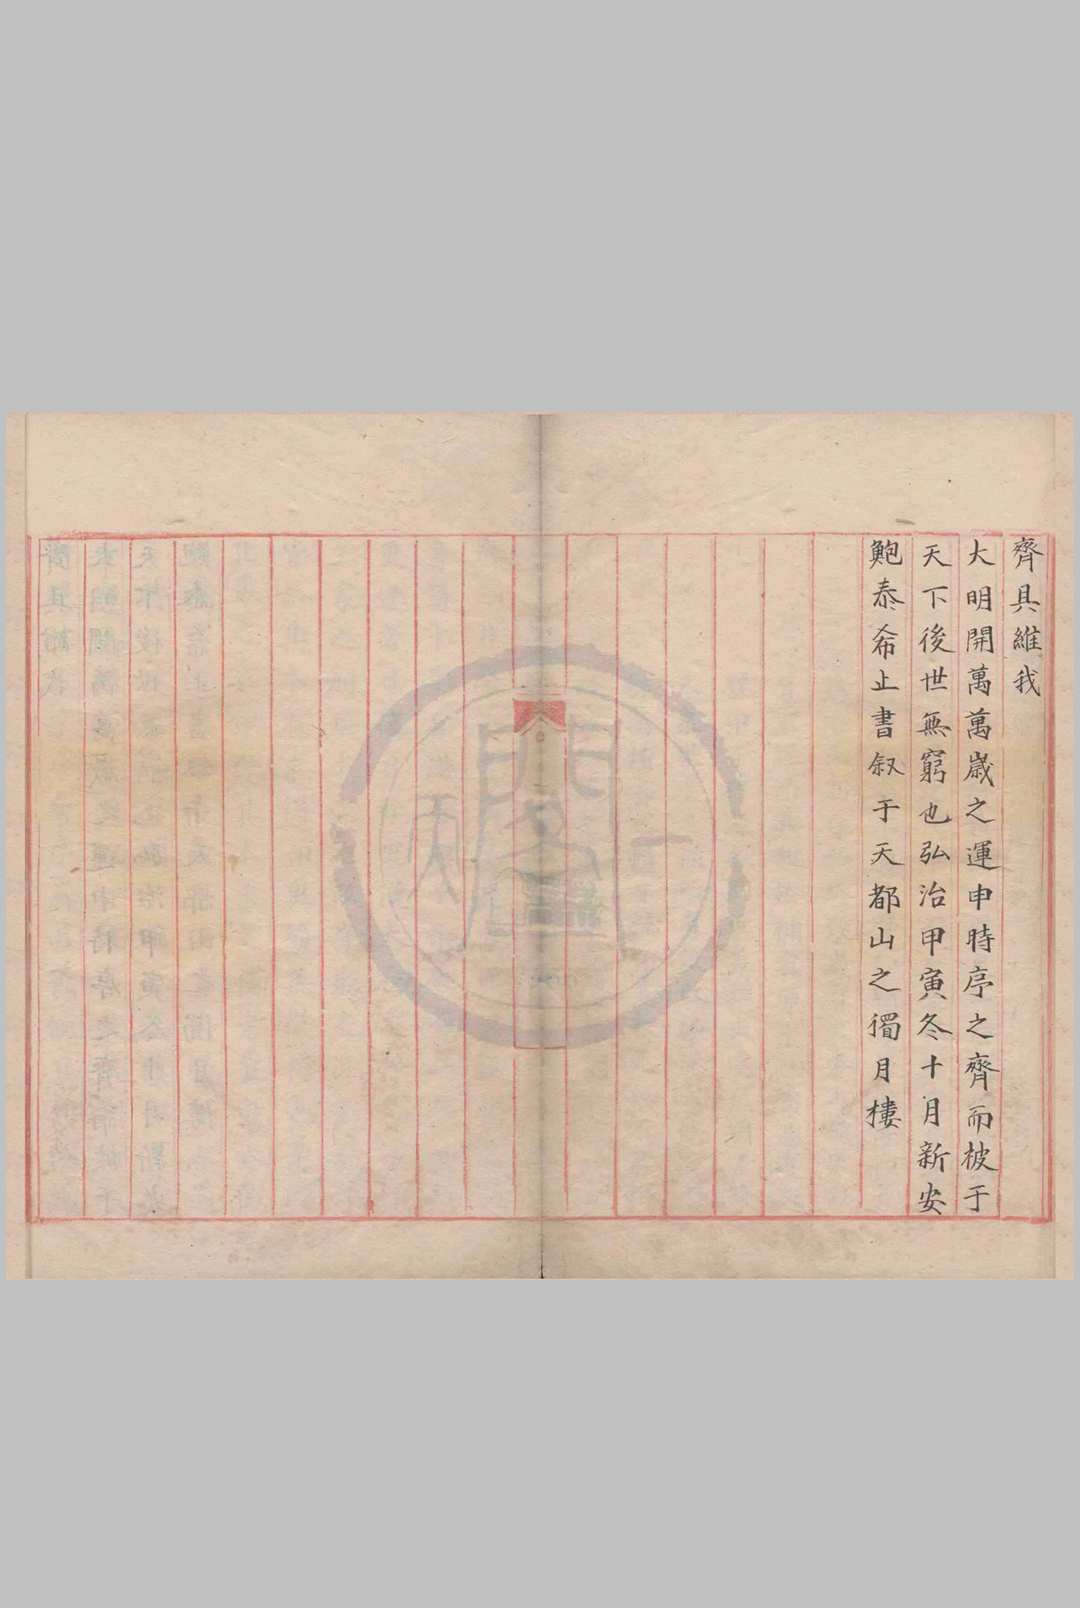 齊具維我
大明開萬萬歲之運申時序之齊而柀于
天下後世無窮也弘治甲寅冬十月新安
鮑泰希止書叙于天都山之獨月樓